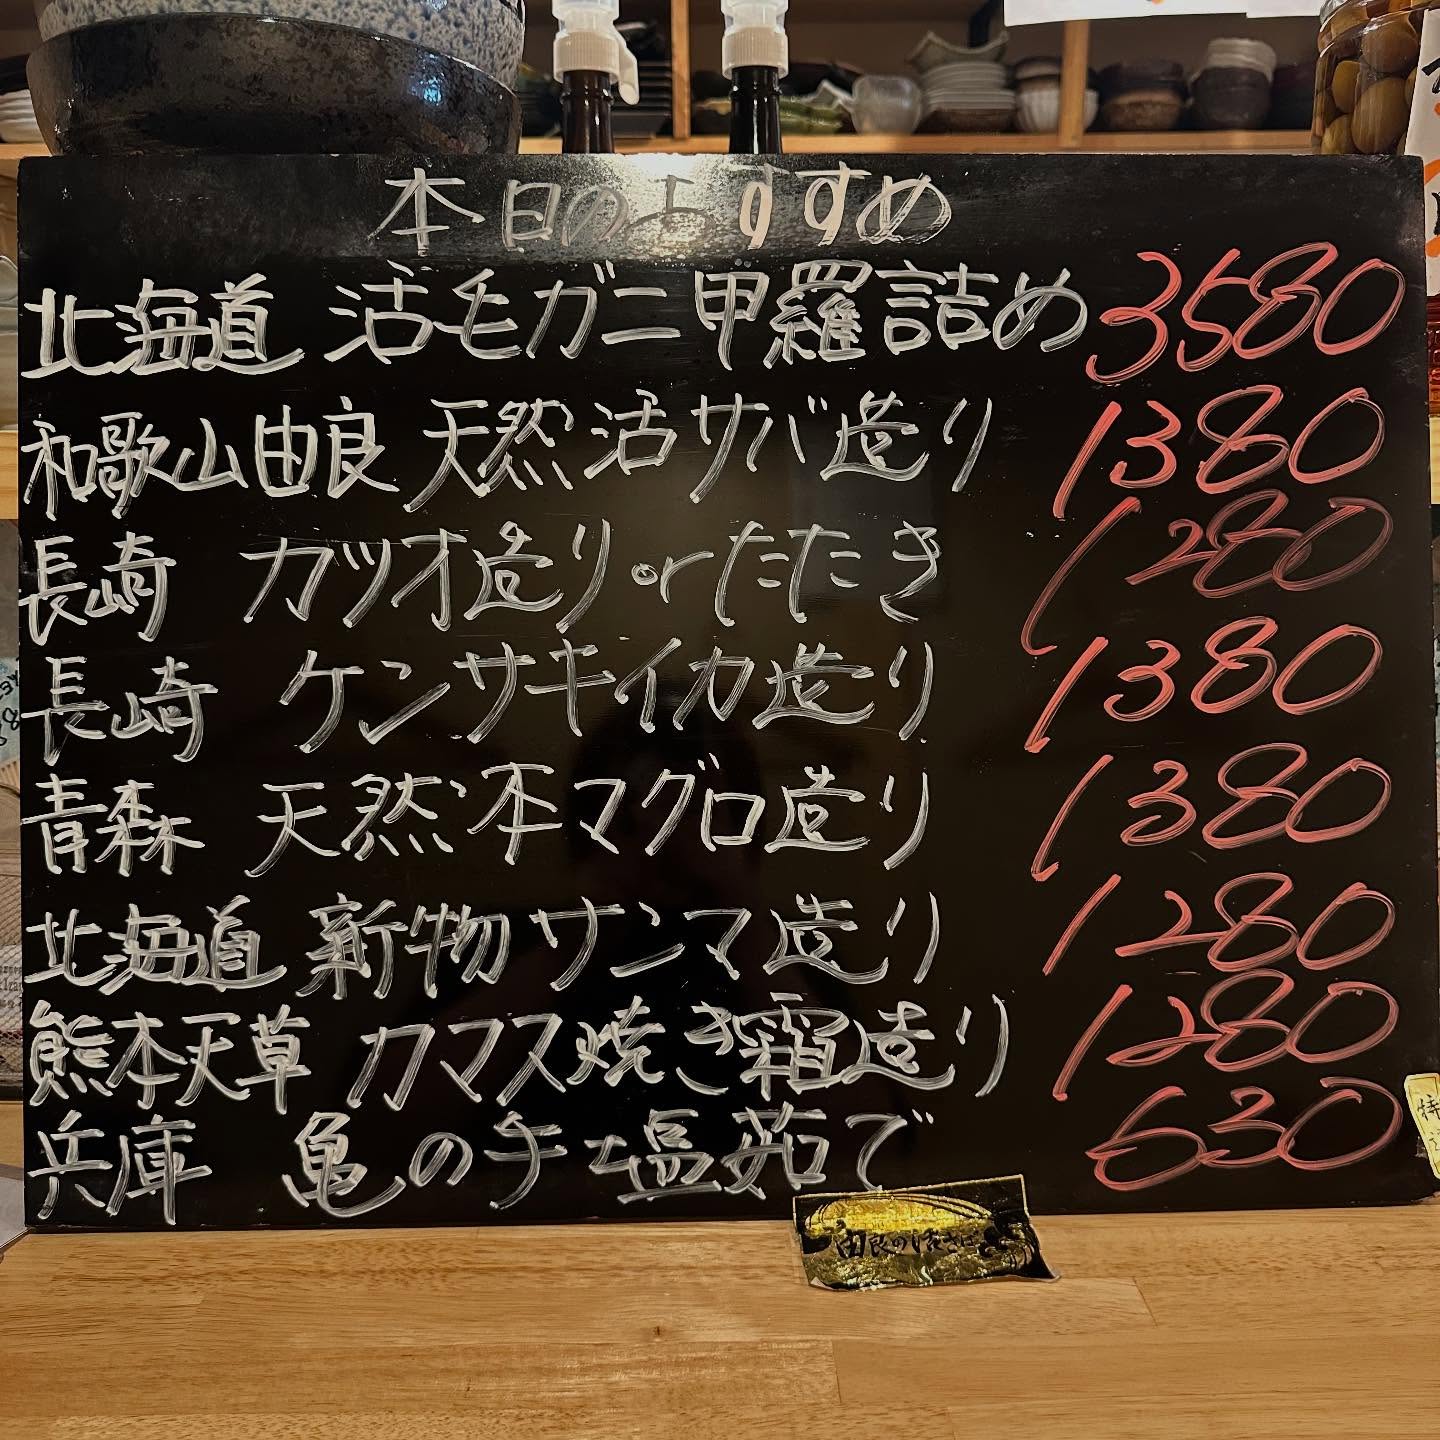 本日のおすすめ
北海道 活毛ガニ甲羅詰め 3580
和歌山由良 天然活サバ造り 1380
長崎 カツオ造りorたたき 1280
長崎 ケンサキイカ造り 1380
青森 天然本マグロ造り 1380
北海道 新物サンマ造り 1280
熊本天草 カマス焼き霜造り 1280
兵庫 亀の手塩茹で 630
由良の活さば